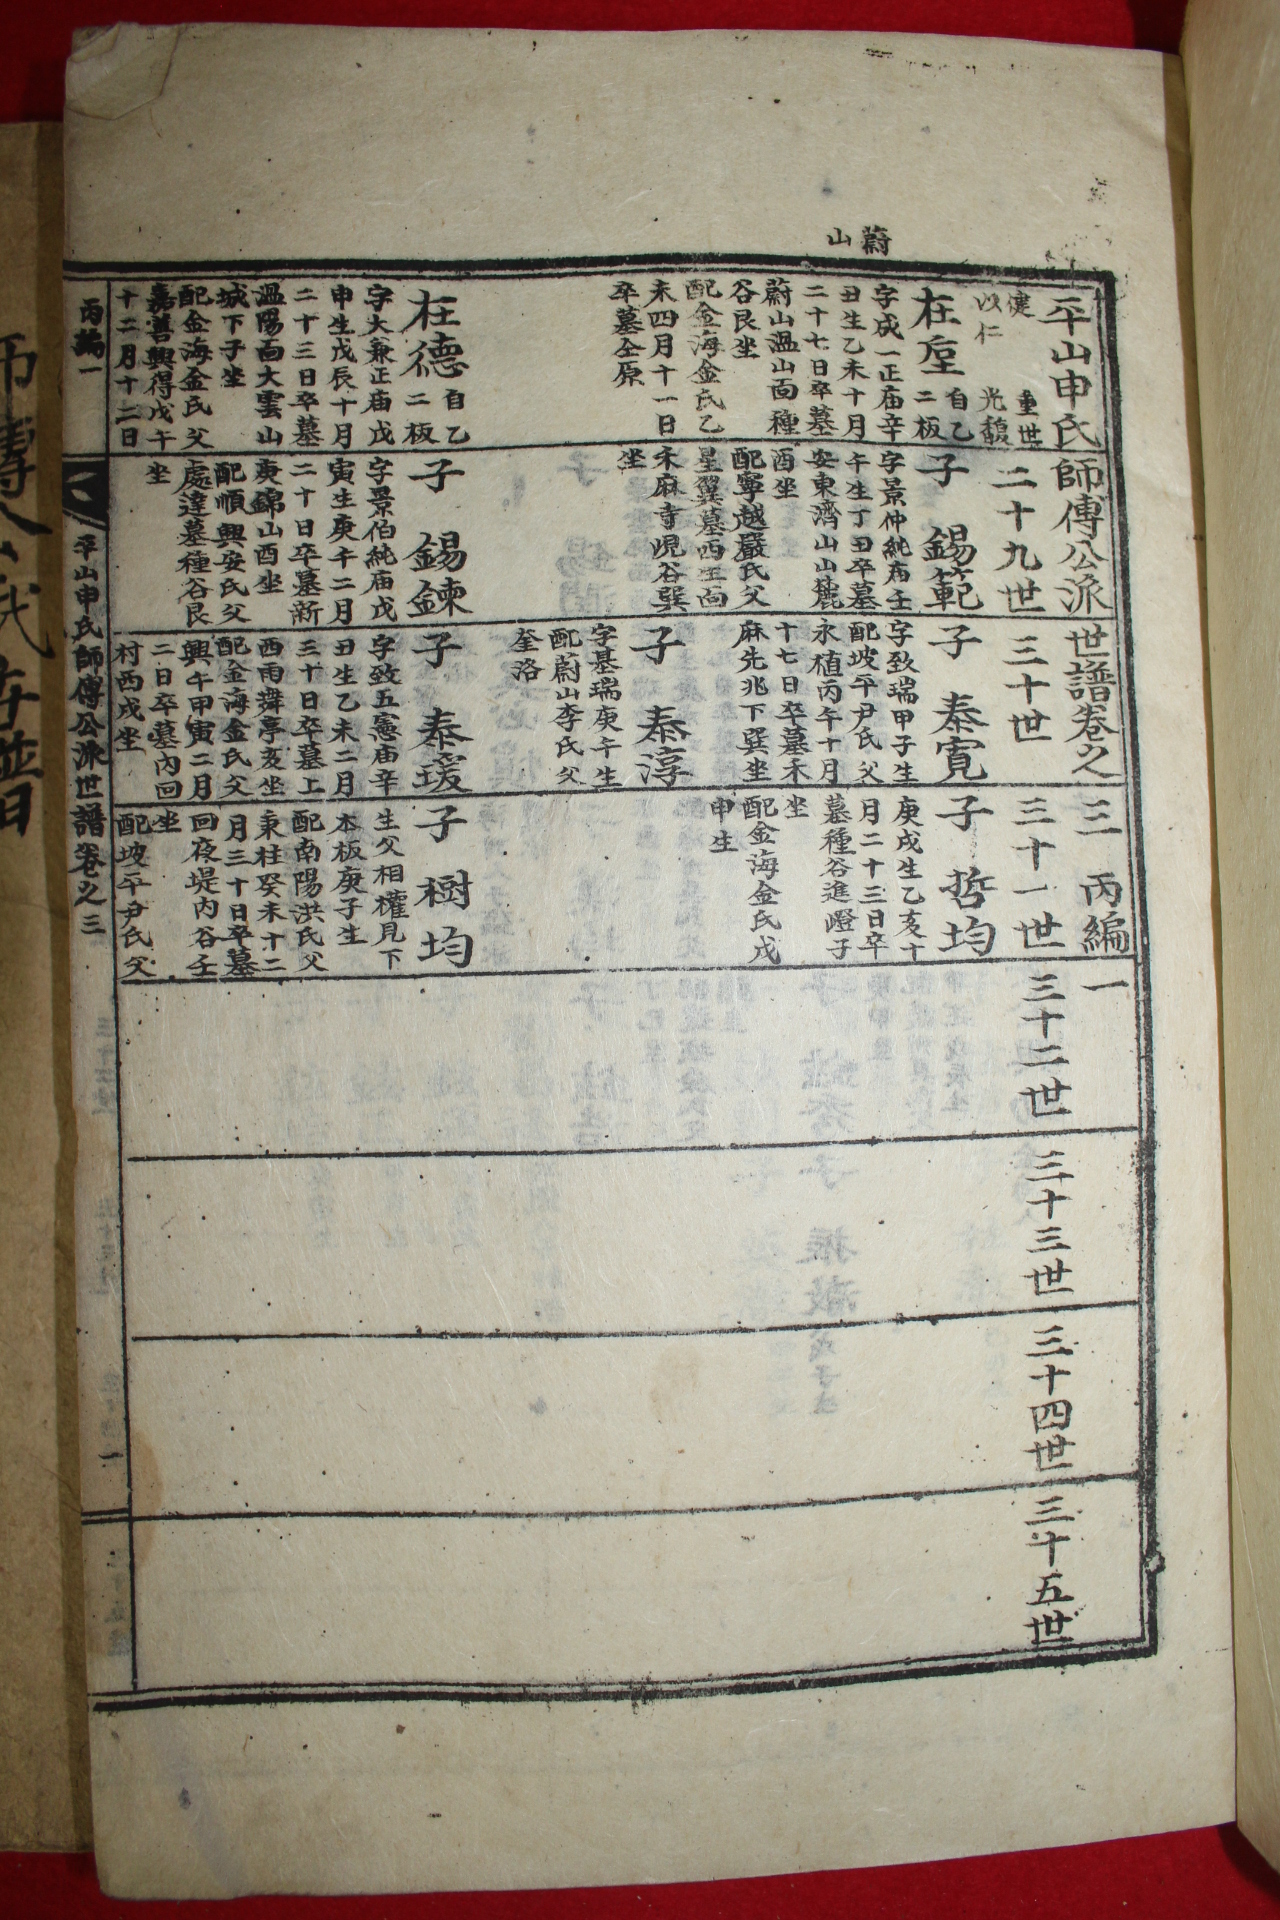 蔚山
平山申氏師傅公派世譜卷之三 丙編一
二十九世
三十世
三十一世
三十二世
三十三世
三十四世
三十五世
健
以仁
重世
光馥
在垕 自乙二板
字成一正庙辛
丑生乙未十月
二十七日卒墓
蔚山溫山面種
谷艮坐
配金海金氏乙
未四月十一日
卒墓仝原
在德 自乙二板
字大兼正庙戊
申生戊辰十月
二十三日卒墓
溫陽面大雲山
城下子坐
配金海金氏父
嘉善興得戊午
十二月十二日
子 錫範
字景仲純庙壬
午生丁丑卒墓
安東濟山山麓
酉坐
配寧越嚴氏父
星翼墓西生面
禾麻寺峴谷巽
坐
子 錫鍊
字景伯純庙戊
寅生庚午二月
二十日卒墓新
庚錦山酉坐
配順興安氏父
處達墓種谷艮
坐
子 泰寬
字致瑞甲子生
配坡平尹氏父
永植丙午十月
十七日卒墓禾
麻先兆下巽坐
子 泰淳
字基瑞庚午生
配蔚山李氏父
奎洛
子 泰瑗
字致五憲庙辛
丑生乙未二月
三十日卒墓上
西雨舞亭亥坐
配金海金氏父
興午甲寅二月
二日卒墓內回
村酉戌坐
子 哲均
庚戌生乙亥十
月二十三日卒
墓種谷進嶝子
坐
配金海金氏戊
申生
子 樹均
生父相權見下
本板庚子生
配南陽洪氏父
秉柱癸未十二
月三十日卒墓
回夜堤內谷壬
坐
配坡平尹氏父
丙編一
平山申氏師傅公派世譜卷之三
一